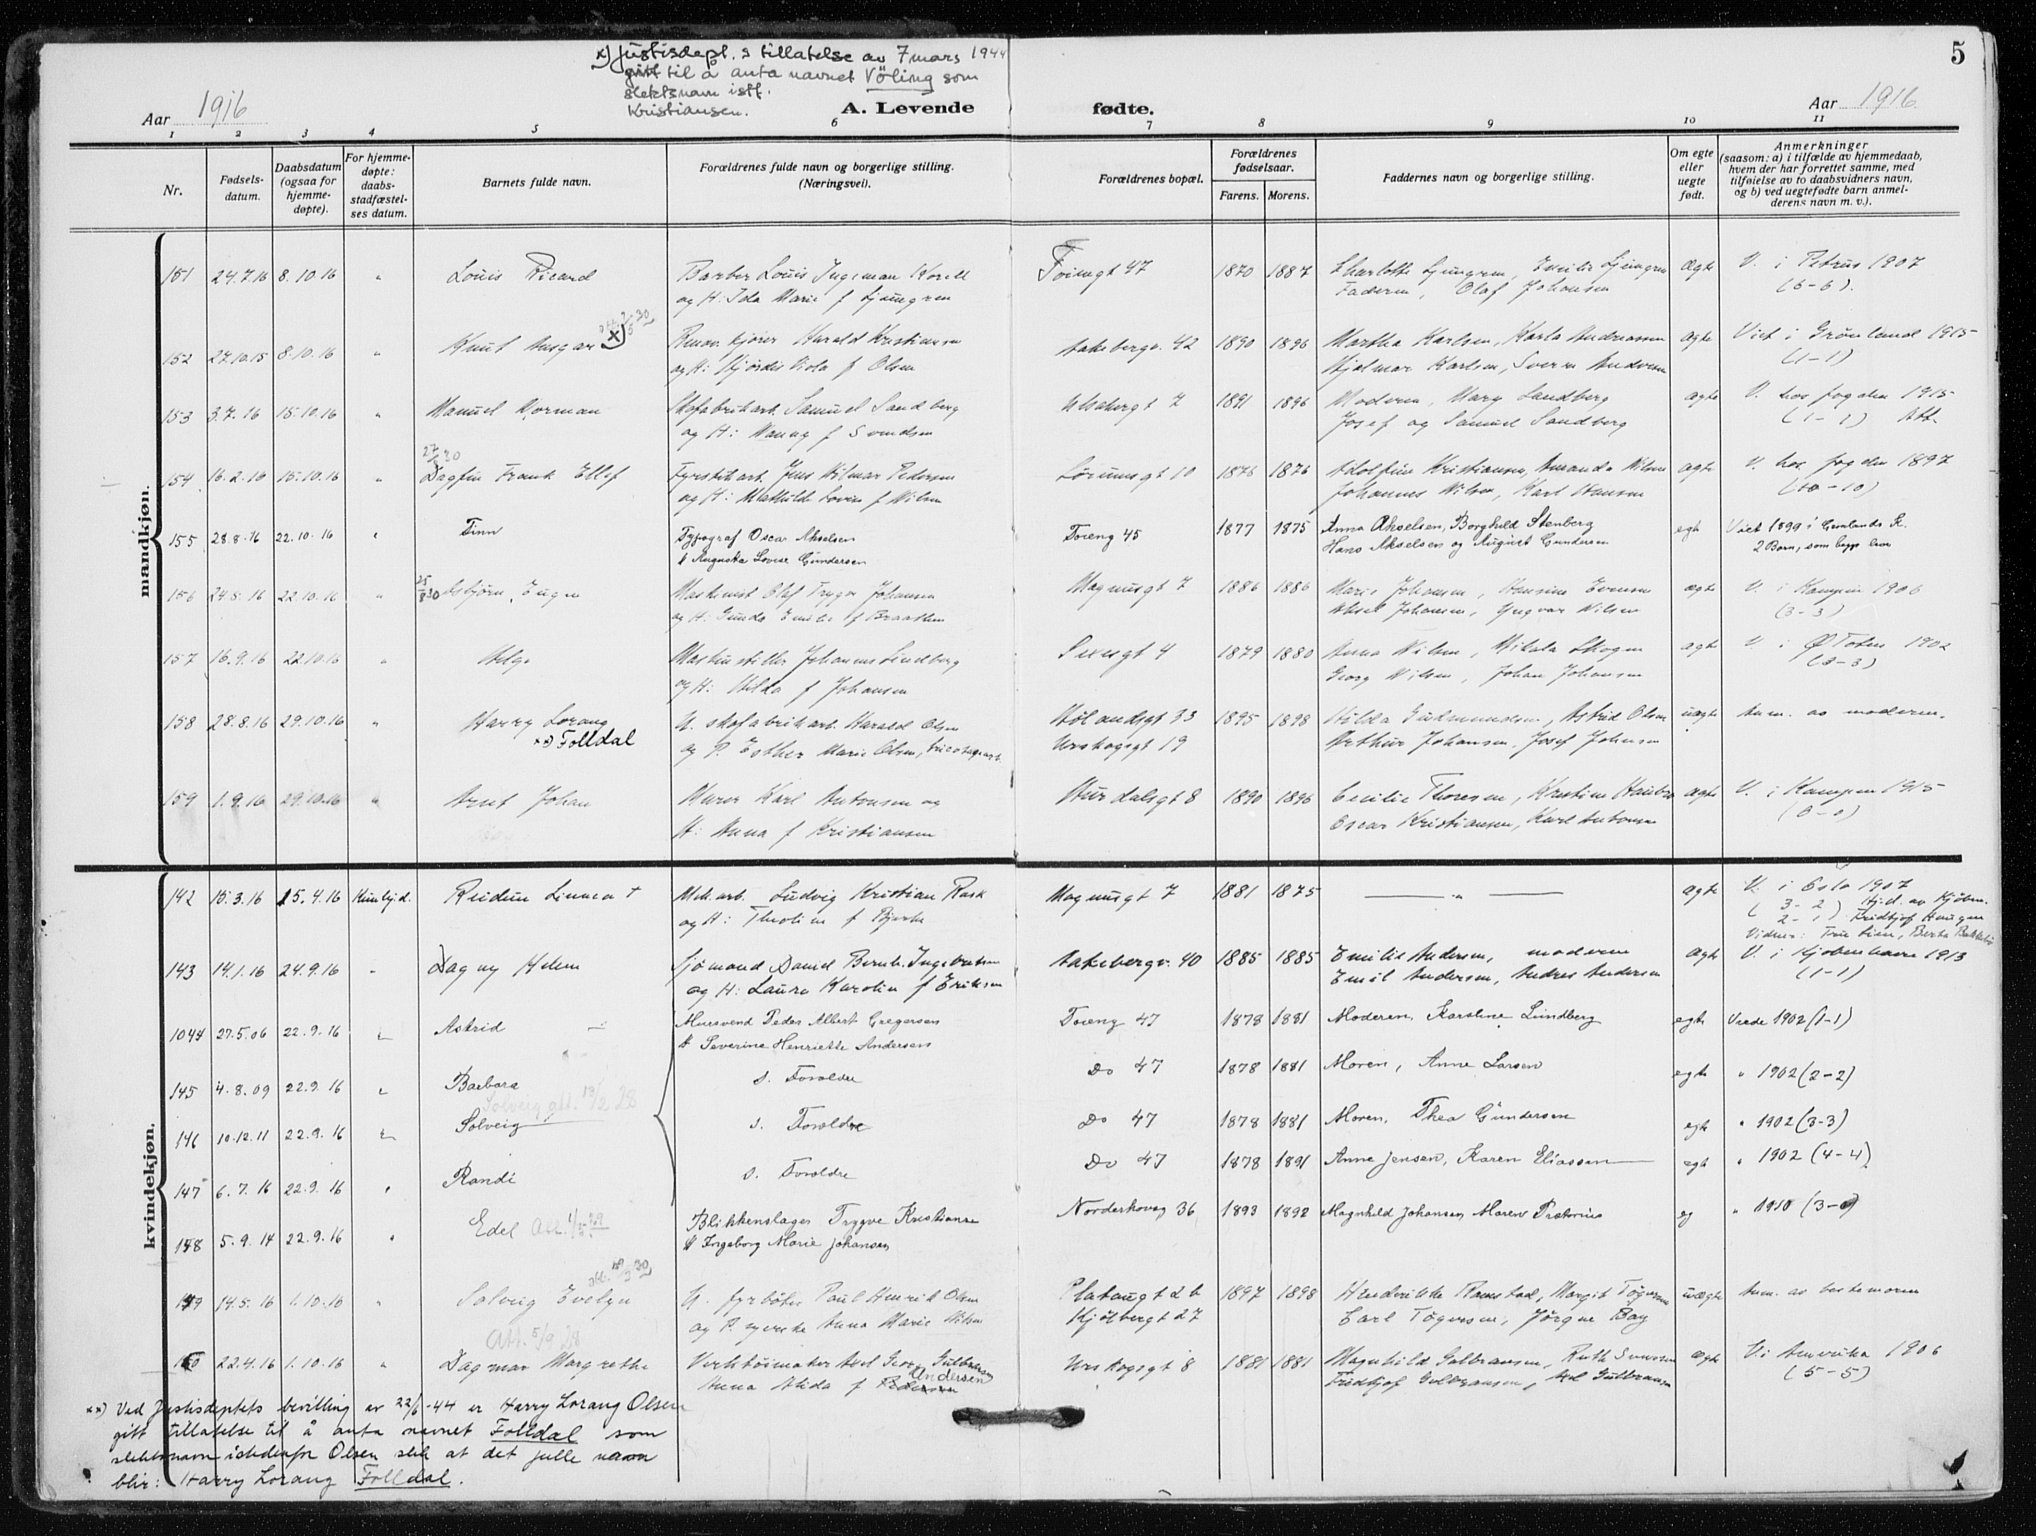 x) Justisdept.s tillatelse av 7 mars 1944
gitt til å anta navnet Völing som
slektsnavn istf.
Kristiansen.
5
Aar 1916
A. Levende fødte.
Aar 1916
1 2 3 4 5 6 7 8 9 10 11
Nr.
Fødsels-
datum.
Daabsdatum
(ogsaa for
hjemme-
døpte).
For hjemme-
døpte:
daabs-
stadfæstel-
ses datum.
Barnets fulde navn.
Forældrenes fulde navn og borgerlige stilling.
(Næringsvei).
Forældrenes bopæl.
Forældrenes
fødselsaar.
Farens. Morens.
Faddernes navn og borgerlige stilling.
Om egte
eller
uegte
født.
Anmerkninger
(saasom: a) i tilfælde av hjemmedaab,
hvem der har forrettet samme, med
tilføielse av to daabsvidners navn,
og b) ved uegtefødte barn anmel-
derens navn m. v.).
mandkjøn.
151 24.7.16 8.10.16 " Louis Ricard Barber Louis Ingeman Norell Toiengt 47 1870 1887 Charlotte Ljungren, Emilie Ljungren Ægte V. i Petrus 1907
og H: Ida Marie f Ljungren Faderen, Olaf Johansen (6-6).
152 27.10.15 8.10.16 " Knut Ansgar x) Renov. kjører Harald Kristiansen Aakebergv. 42 1890 1896 Martha Karlsen, Karla Andreassen ægte Viet i Grønland 1915
og H: Hjørdis Viola f Olsen Hjalmar Karlsen, Sverre Andersen (1-1)
153 3.7.16 15.10.16 " Manuel Norman Skofabrikarb. Samuel Sandberg 7 1891 1896 Moderen, Mary Sandberg ægte V. hos fogden 1915
og H: Nanny f Svendsen Josef og Samuel Sandberg (1-1) Att.
27/5 30
154 16.2.16 15.10.16 " Dagfin Frank Ellef Fyrstikarb. Jens Hilmar Pedersen Sørumsgt 10 1876 1876 Adolfine Kristiansen, Amanda Nilsen ægte V. hos fogden 1897
og H: Mathilde Lovise f Nilsen Johannes Nilsen, Karl Hansen (10-10)
155 28.8.16 22.10.16 " Finn Typograf Oscar Akselsen Toieng 45 1877 1875 Anna Akselsen, Borghild Stenberg egt Viet 1899 i Grønlands K.
& Augusta Lovise Gundersen Hans Akselsen og August Gundersen 2 Børn, som begge lever
156 24.8.16 22.10.16 " Asbjørn Eugen Maskinist Olaf Trygve Johansen Magnusgt 7 1886 1886 Marie Johansen, Hansine Evensen ægte V. i Kampen 1906
og H: Gunda Emilie f Braathen Aksel Johansen, Yngvar Nilsen (3-3)
157 16.9.16 22.10.16 " Helge Maskinstiller Johannes Lindberg 4 1879 1880 Anna Nilsen, Mikala Skogen ægte V. i Ø Toten 1902
og H: Hilda f Johansen Georg Nilsen, Johan Johansen (3-3)
158 28.8.16 29.10.16 " Harry Lorang U. skofabrikarb. Harald Olsen Hølandsgt 33 1895 1898 Hilda Gudmundsen, Astrid Olsen uægte Anm. av moderen.
xx) Folldal og P. Esther Marie Olsen, tricotagearb. Urskogsgt 19 Arthur Johansen, Josef Johansen
159 1.9.16 29.10.16 " Arnt Johan Murer Karl Antonsen og Hurdalsgt 8 1890 1896 Cecilie Thoresen, Kristine ægte V. i Kampen 1915
H: Anna f Kristiansen Oscar Kristiansen, Karl Antonsen (0-0)
kvindekjøn.
142 10.3.16 15.4.16 Reidun Linnea † Mek.arb. Ludvig Kristian Rask Magnusgt 7 1881 1875 — " — ægte V. i Oslo 1907
og H: Tholine f Bjerke (3-2 2-1) Hj.d. av Kjøbm.
Fridtjof Haugen
Vidner: Berta
143 14.1.16 24.9.16 " Dagny Helen Sjømand Daniel Bernh. Ingebretsen Aakebergv. 40 1885 1885 Emilie Andersen, moderen ægte V. i Kjøbenhavn 1913
og H: Laura Karolin f Eriksen Emil Andersen, Andreas Andersen (1-1)
1044 27.5.06 22.9.16 " Astrid Mursvend Peder Albert Gregersen Toieng 47 1878 1881 Moderen, Karoline Lundberg egte Viede 1902 (1-1)
& Severine Henriette Andersen
145 4.8.09 22.9.16 " Barbara s. Foreldre Do 47 1878 1881 Moren, Anne Larsen egte " 1902 (2-2)
Solveig att. 13/2 28
146 10.12.11 22.9.16 " Solveig s. Foreldre Do 47 1878 1881 Moren, Thea Gundersen egt " 1902 (3-3)
147 6.7.16 22.9.16 " Randi s. Foreldre Do 47 1878 1891 Anne Jensen, Karen Eliassen egt " 1902 (4-4)
148 5.9.14 22.9.16 " Edel Blikkenslager Trygve Kristiansen Norderhovsg 36 1893 1892 Magnhild Johansen Maren Pretorius eg " 1910 (3-0)
& Ingeborg Marie Johansen
149 14.5.16 1.10.16 " Solveig Evelyn U. fyrbøter Paul Henrik Olsen Platougt 2 b 1897 1898 Hendrikke Ramstad, Margit Tøgersen uægte Anm. av bestemoren
og P. syerske Anna Marie Nilsen Kjølbergt 27 Carl Tøgersen, Jørgen Bay
Att. 5/9 28
150 22.4.16 1.10.16 " Dagmar Margrethe Verktøimaker Axel Georg Gulbransen Urskogsgt 8 1881 1881 Magnhild Gulbransen, Ruth Svensen ægte V. i Amerika 1906
Anna Alida f Pedersen Andersen Fridtjof Gulbransen, Axel Gulbransen (5-5)
xx) Ved Justisdeptets bevilling av 22/6-44 er Harry Lorang Olsen
gitt tillatelse til å anta navnet Folldal som
slektsnavn istedenfor Olsen slik at det fulle navn
blir: Harry Lorang Folldal.